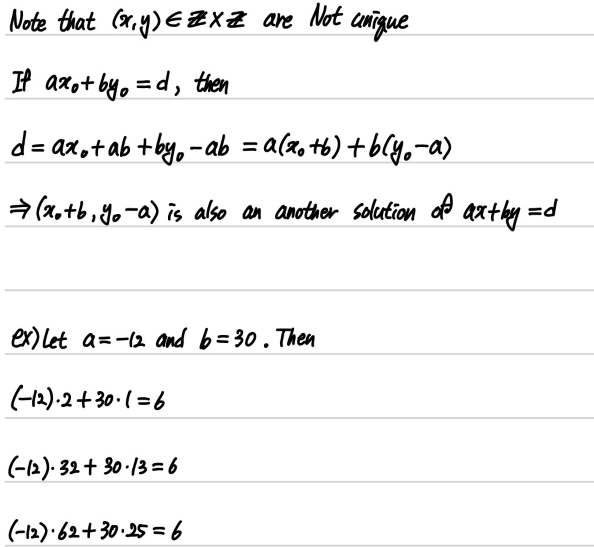 Note that (x,y)∈ℤ×ℤ are Not unique
If ax₀+by₀=d, then
d=ax₀+ab+by₀-ab=a(x₀+b)+b(y₀-a)
⇒(x₀+b, y₀-a) is also an another solution of ax+by=d
ex) let a=-12 and b=30. Then
(-12)·2+30·1=6
(-12)·32+30·13=6
(-12)·62+30·25=6